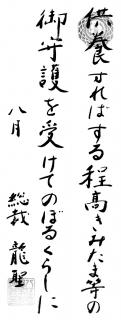 供養すればする程高きみたま等の
御守護を受けてのぼるくらしに
八月
総裁 龍聖